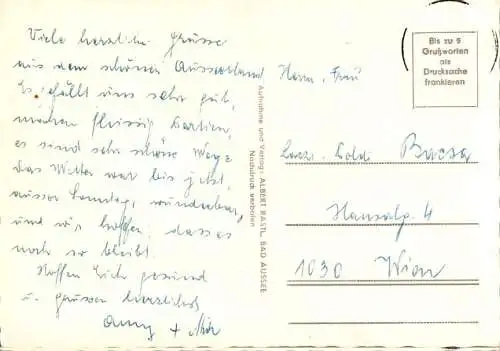 Viele herzliche Grüsse
aus dem schönen Ausseerland
Es gefällt uns sehr gut,
machen fleissig Partien,
es sind sehr schöne Wege
Das Wetter war bis jetzt,
ausser Sonntag, wunderbar,
und wir hoffen, dass es
noch so bleibt.
Hoffen Euch gesund
u. grüssen herzlichst
Aufnahme und Verlag: ALBERT RASTL, BAD AUSSEE
Nachdruck verboten
Bis zu 5
Grußworten
als
Drucksache
frankieren
Herrn, Frau
Poldi
Hansalg. 4
1030 Wien